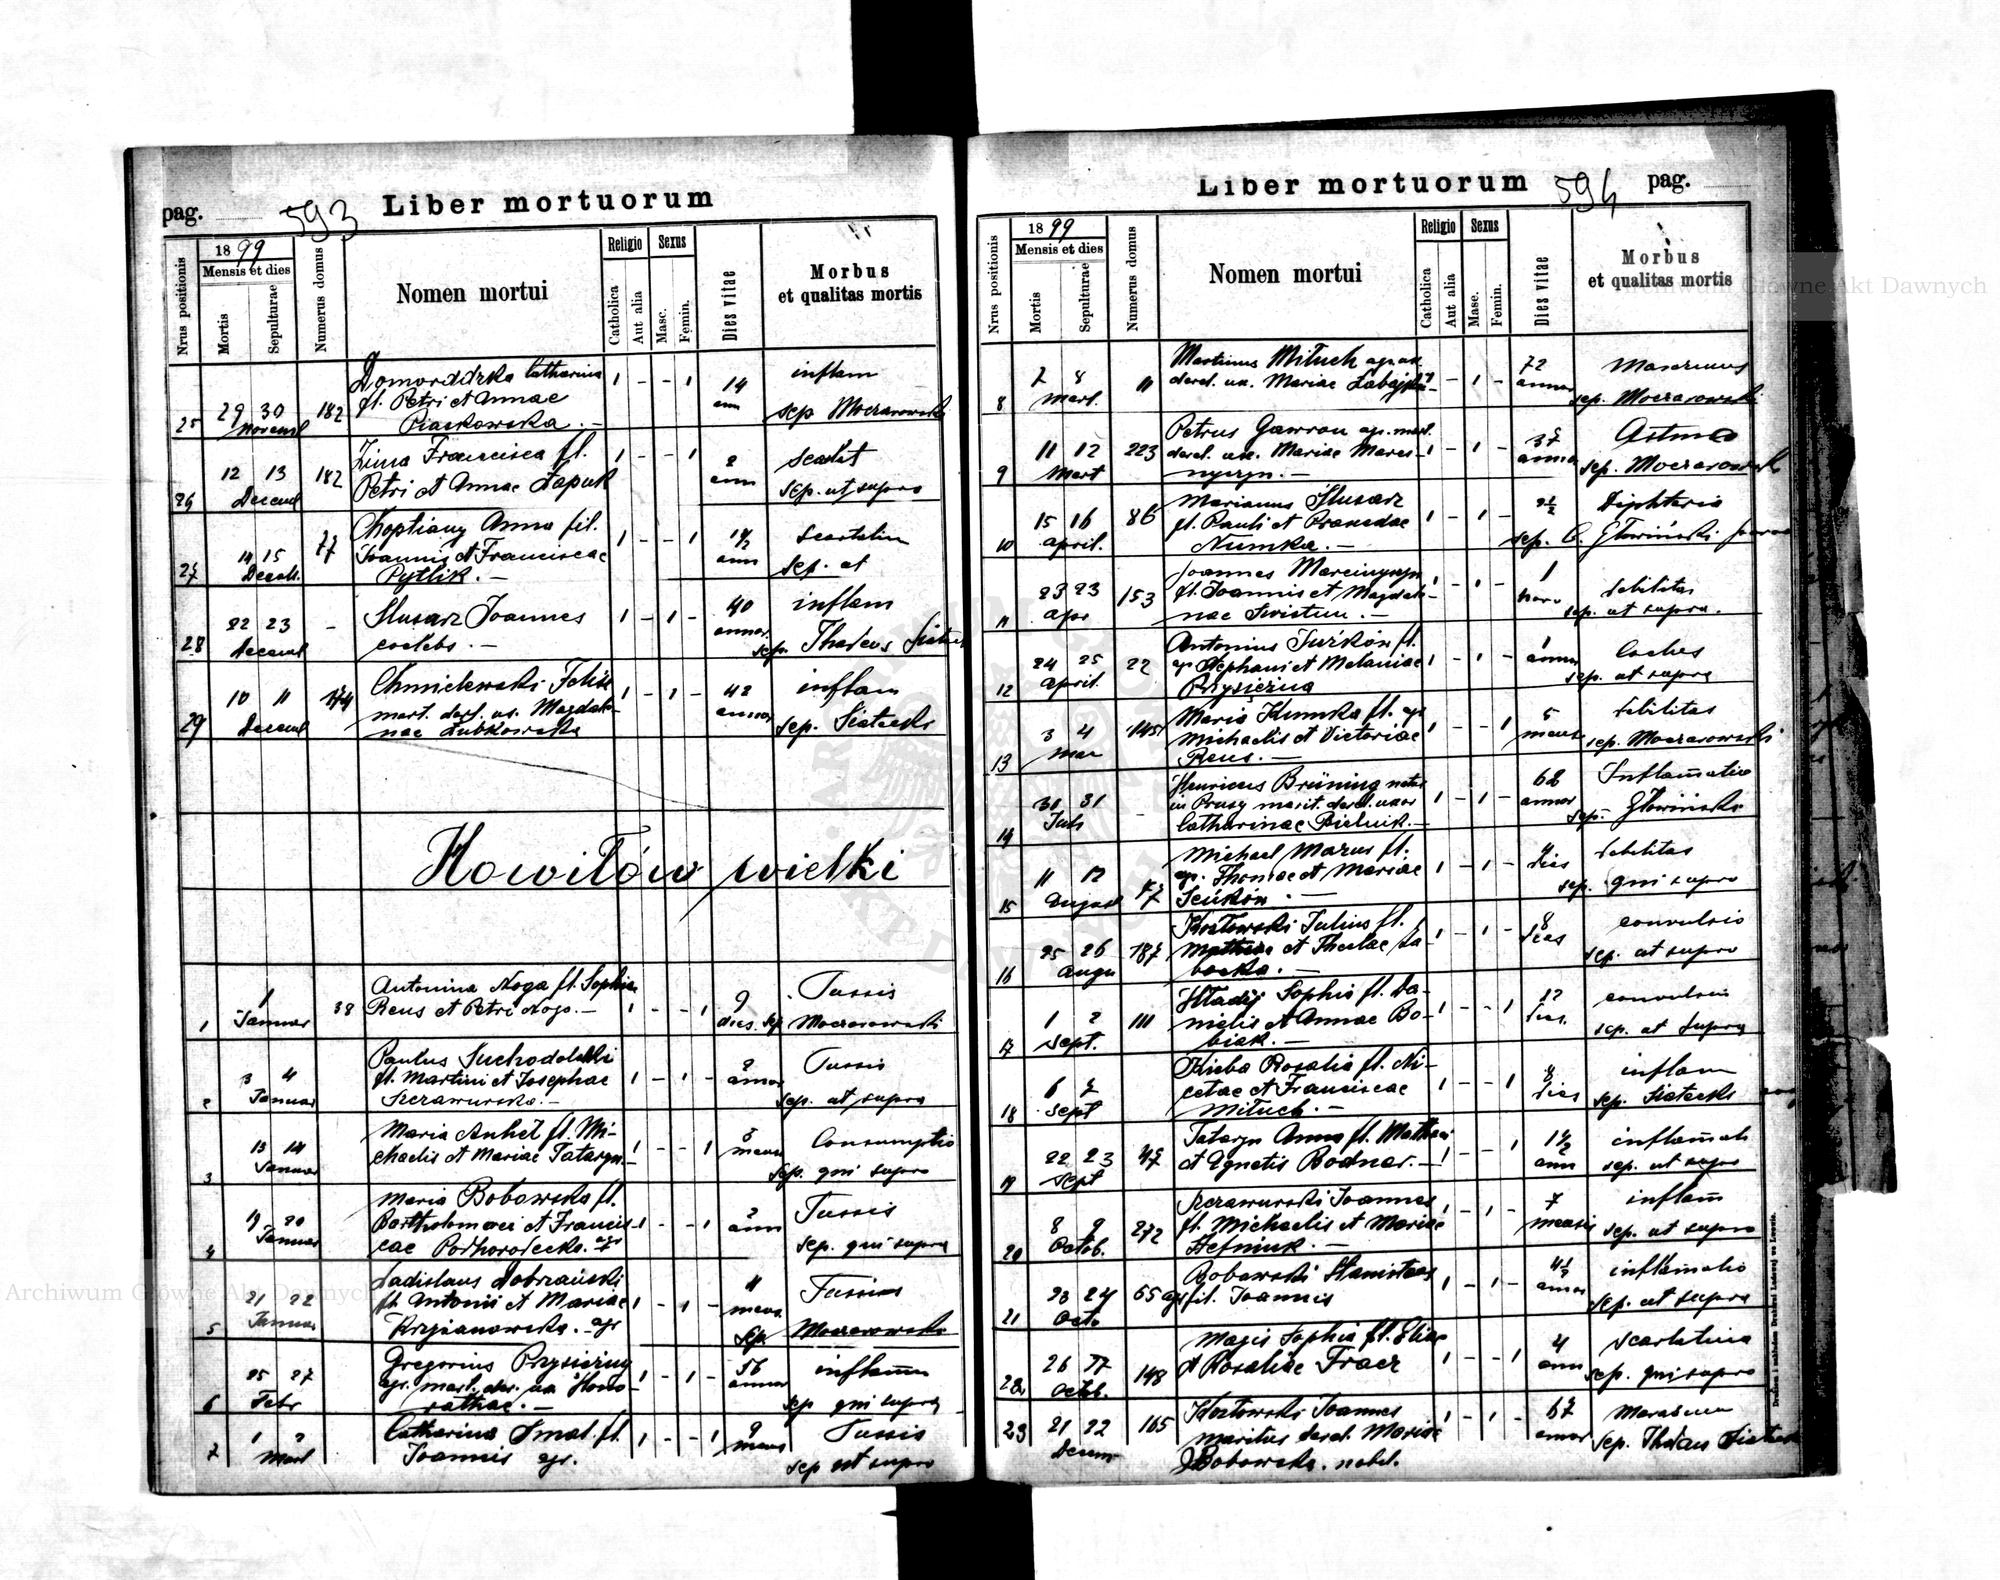 pag. 593 Liber mortuorum
Nrus positionis
1899
Mensis et dies
Mortis
Sepulturae
Numerus domus
Nomen mortui
Religio
Catholica
Aut alia
Sexus
Masc.
Femin.
Dies vitae
Morbus
et qualitas mortis
25 29 30 Novemb 182 Catharina 1 - - 1 14 ann inflam
fl. Petri et Annae
Piaskowska. - sep Moczarowski
26 12 13 Decemb 182 Zima Francisca fl. 1 - - 1 2 ann scarlat
Petri et Annae Łapuk sep. ut supra
27 14 15 Decemb. 77 Choptiany Anna fil. 1 - - 1 1½ ann scarlatin
Joannis et Franciscae
Pytlik. - sep. ut
28 22 23 Decemb - Slusarz Joannes 1 - 1 - 40 annor. inflam
coelebs. - sep. Thadeus
29 10 11 Decemb 174 Chmielewski Felix 1 - 1 - 42 annor inflam
mart. derel. ux. Magdale-
nae Zubkowska sep. Siatecki
Howiłów wielki
1 1 Januar 38 Antonina Noga fl. Sophia 1 - - 1 9 dies. Tussis
Reus et Petri Noga. - sep Moczarowski
2 3 4 Januar Paulus Suchodolski 1 - 1 - 2 annor Tussis
fl. Martini et Josephae
Szczawurska. - sep. ut supra
3 13 14 Januar Maria Anhel fl. Mi- 1 - - 1 mens Consumptio
chaelis et Mariae Tataryn. - sep. qui supra
4 19 20 Januar Maria Bobowska fl. 1 - - 1 2 ann Tussis
Bartholomaei et Francis-
cae Podhorodecka. agr sep. qui supra
5 21 22 Januar Ladislaus Dobrzański 1 - 1 - 11 mens Tussis
fl. Antonii et Mariae
Krzyżanowska. agr sep Moczarowski
6 25 27 Febr Gregorius Przysiężny 1 - 1 - 56 annor inflam
agr. mart. der. ux Hono-
rathae. - sep qui supra
7 1 2 Mart Catharina Smal. fl. 1 - - 1 9 mens Tussis
Joannis agr. sep ut supra
Liber mortuorum 594 pag.
Nrus positionis
1899
Mensis et dies
Mortis
Sepulturae
Numerus domus
Nomen mortui
Religio
Catholica
Aut alia
Sexus
Masc.
Femin.
Dies vitae
Morbus
et qualitas mortis
8 7 8 Mart. 11 Martinus Mituch 1 - 1 - 72 annor Marasmus
derel. ux. Mariae sep. Moczarowski
9 11 12 Mart 223 Petrus Gawron agr. mart. 1 - 1 - 37 annor Astma
derel. ux. Mariae Marcy-
nyszyn. - sep. Moczarowski
10 15 16 April. 86 Marianus Slusarz 1 - 1 - 2½ Diphteria
fl. Pauli et Praxedae
Numka. - sep. C. Głowiński
11 23 23 Apr 153 Joannes Marcinyszyn 1 - 1 - 1 hora debilitas
fl. Joannis et Magdale-
nae Swistun. - sep. ut supra.
12 24 25 April. 22 Antonius Juzków fl. 1 - 1 - 1 annor
agr Stephani et Melaniae
Przysiężna sep. ut supra
13 3 4 Mar 145 Maria Kumka fl. agr 1 - - 1 5 mens debilitas
Michaelis et Victoriae
Reus. - sep. Moczarowski
14 30 31 Juli - Henricus Brüning natus 1 - 1 - 68 annor Inflamatio
in Prusy marit. derel. uxor
Catharinae Pielnik. - sep. Głowiński
15 11 12 August 77 Michael Mazus fl. 1 - 1 - 4 dies debilitas
agr. Thomae et Mariae
Seńków. - sep. qui supra
16 25 26 Augu 187 Kozłowski Julius fl. 1 - 1 - 8 dies convulsio
Mathiae et Theclae Za-
bocka. - sep. ut supra
17 1 2 Sept. 111 Hladij Sophia fl. Da- 1 - - 1 12 dies. convulsio
nielis et Annae Bo-
biak. - sep. ut supra
18 6 7 Sept Kieba Rosalia fl. Ni- 1 - - 1 8 dies inflam
cetae et Franciscae
Mituch. - sep. Siatecki
19 22 23 Sept 47 Tataryn Anna fl. Mathaei 1 - - 1 1½ ann inflamat
et Agnetis Bodnar. - sep. ut supr
20 8 9 Octob. 272 Szczawurski Joannes 1 - 1 - 7 mensis inflam
fl. Michaelis et Mariae
Hefniuk. - sep. ut supra
21 23 24 Octo 65 Bobowski Stanislaus 1 - 1 - 4½ annor inflamatio
agr fil. Joannis sep. ut supra
22 26 27 Octob. 148 Magis Sophia fl. Eliae 1 - - 1 4 ann scarlatina
et Rosaliae Fracz sep. qui supra
23 21 22 Decem 165 Kozłowski Joannes 1 - 1 - 67 annor Marasmus
maritus derel. Mariae
Bobowska. nobil. sep. Thadaeus Siatecki
Archiwum Główne Akt Dawnych
Archiwum Główne Akt Dawnych